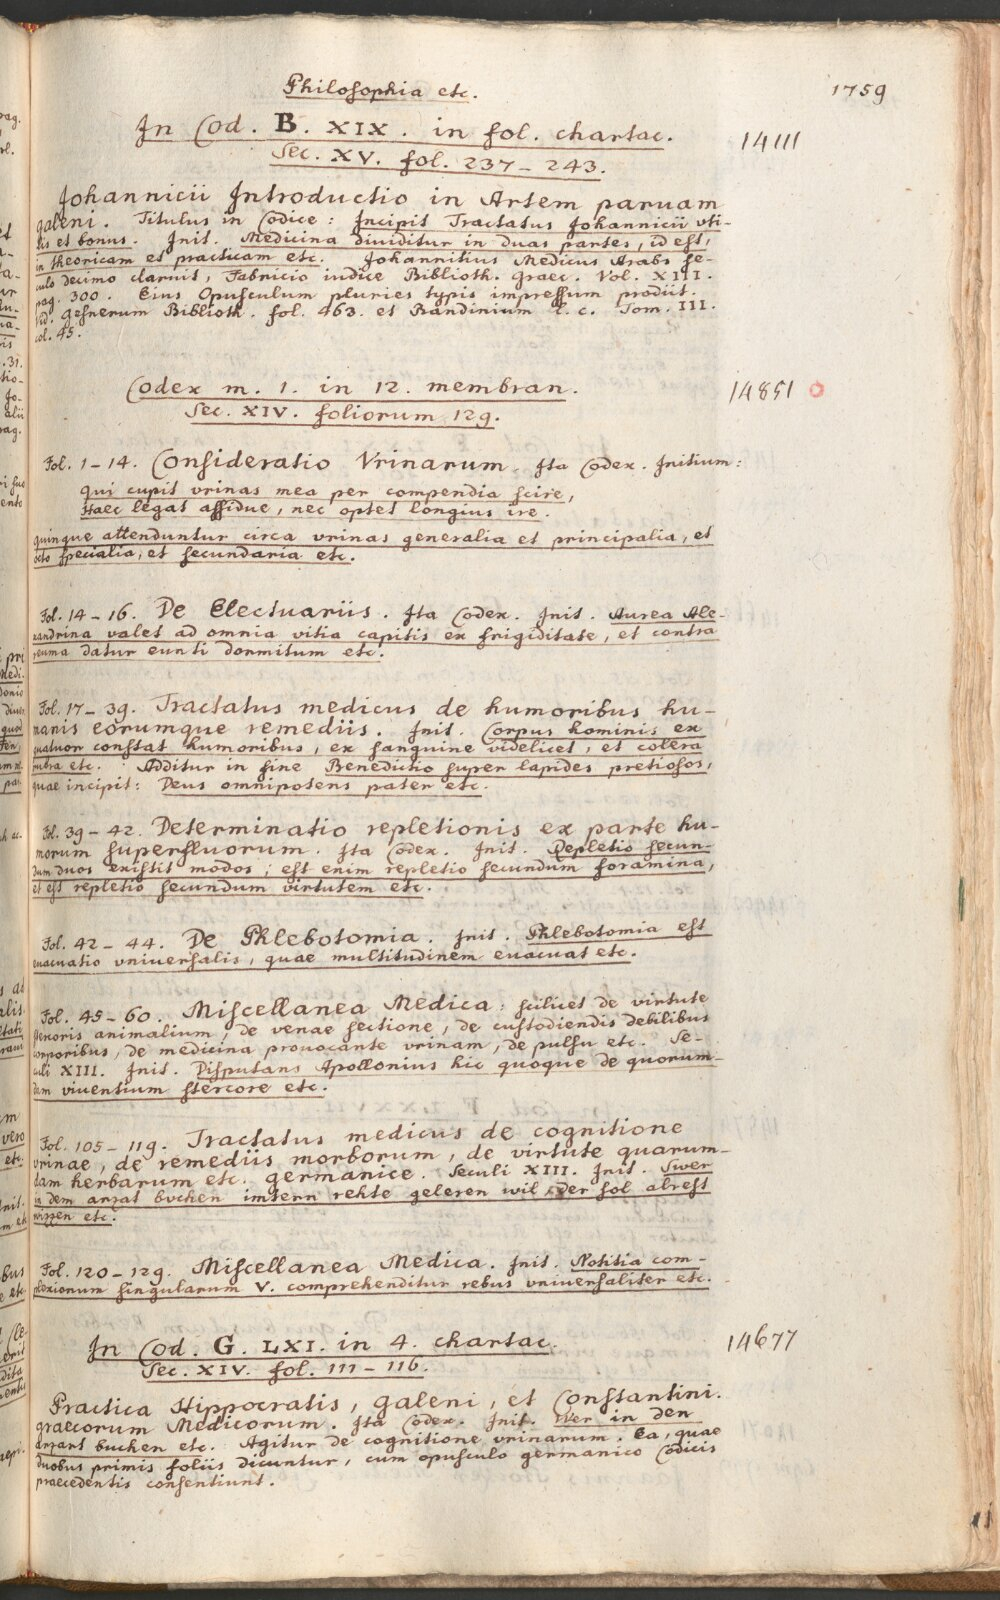 Philosophia etc.
1759
In Cod. B. XIX. in fol. chartac.
14111
Sec. XV. fol. 237-243.
Johannicii Introductio in Artem paruam
galeni. Titulus in Codice: Incipit Tractatus Johannicii vti-
lis et bonus. Init. Medicina diuiditur in duas partes, id est,
in theoricam et practicam etc. Johannitius Medicus Arabs se-
culo decimo claruit, Fabricio iudice Biblioth. graec. Vol. XIII.
pag. 300. Eius Opusculum pluries typis impressum prodiit.
Vid. gesnerum Biblioth. fol. 463. et Bandinium l. c. Tom. III.
col. 45.
Codex m. 1. in 12. membran.
14851
Sec. XIV. foliorum 129.
Fol. 1-14. Consideratio Vrinarum. Ita Codex. Initium:
Qui cupit vrinas mea per compendia scire,
Haec legat assidue, nec optet longius ire.
quinque attenduntur circa vrinas generalia et principalia, et
octo specialia, et secundaria etc.
Fol. 14-16. De Electuariis. Ita Codex. Init. Aurea Ale-
xandrina valet ad omnia vitia capitis ex frigiditate, et contra
reuma datur eunti dormitum etc.
Fol. 17-39. Tractatus medicus de humoribus hu-
manis eorumque remediis. Init. Corpus hominis ex
quatuor constat humoribus, ex sanguine videlicet, et colera
rubra etc. Additur in fine Benedictio super lapides pretiosos,
quae incipit: Deus omnipotens pater etc.
Fol. 39-42. Determinatio repletionis ex parte hu-
morum superfluorum. Ita Codex. Init. Repletio secun-
dum duos existit modos; est enim repletio secundum foramina,
et est repletio secundum virtutem etc.
Fol. 42-44. De Phlebotomia. Init. Phlebotomia est
euacuatio vniuersalis, quae multitudinem euacuat etc.
Fol. 45-60. Miscellanea Medica: scilicet de virtute
stercoris animalium, de venae sectione, de custodiendis debilibus
corporibus, de medicina prouocante vrinam, de pulsu etc. Se-
culi XIII. Init. Disputans Apollonius hic quoque de quorum-
dam viuentium stercore etc.
Fol. 105-119. Tractatus medicus de cognitione
vrinae, de remediis morborum, de virtute quarum-
dam herbarum etc. germanice. Seculi XIII. Init. Swer
in dem arzat buchen intern rehte geleren wil, der sol alrest
wizzen etc.
Fol. 120-129. Miscellanea Medica. Init. Notitia com-
plexionum singularum V. comprehenditur rebus vniuersaliter etc.
In Cod. G. LXI. in 4. chartac.
14677
Sec. XIV. fol. 111-116.
Practica Hippocratis, galeni, et Constantini.
graecorum Medicorum. Ita Codex. Init. Wer in den
arzart buchen etc. Agitur de cognitione vrinarum. Ea, quae
duobus primis foliis dicuntur, cum opusculo germanico Codicis
praecedentis consentiunt.